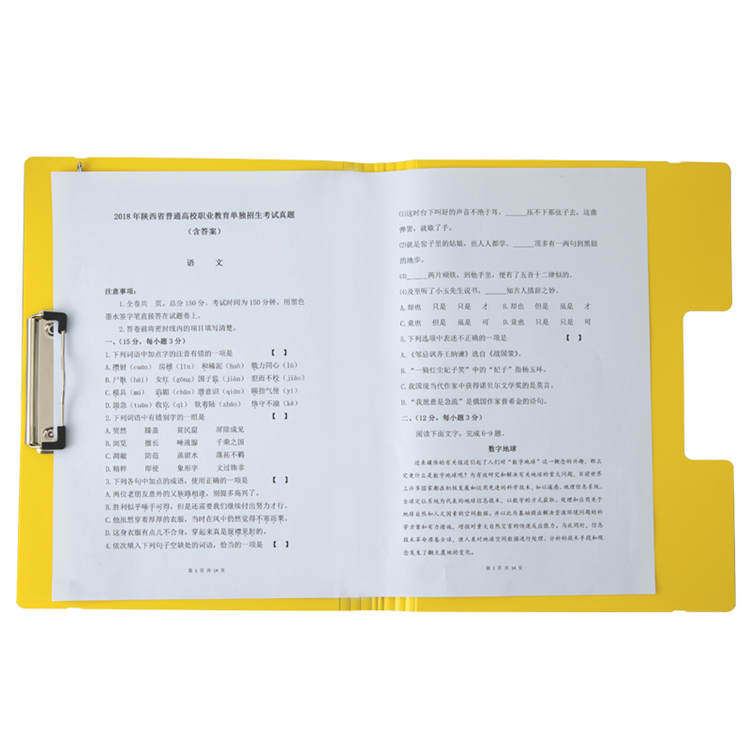 2018 年陕西省普通高校职业教育单独招生考试真题
（含答案）
语 文
注意事项：
1.全卷共 页，总分 150 分，考试时间为 150 分钟，用黑色
墨水签字笔直接答在试题卷上。
2.答卷前将密封线内的项目填写清楚。
一、（15 分，每小题 3 分）
1.下列词语中加点字的注音有错的一项是 【 】
B.尸骸（hái） 女红（gōng） 国子监（jiàn） 胫而不校（jiào）
2.下列词语中有错别字的一组是 【 】
A.贸然 膝盖 贫民窟 屏除成见
B.浏览 擅长 唾液腺 千乘之国
C.凋敝 防范 蒸馏水 落拓不羁
D.精粹 即使 象形字 文过饰非
3.下列各句中加点的成语，使用正确的一项是 【 】
A.两位老朋友意外的又狭路相逢，别提多高兴了。
B.胜利似乎唾手可得，但是还需要我们继续付出努力才行。
C.他虽然穿着厚厚的衣服，当时在风中仍然觉得不寒而栗。
D.这身衣服有点儿不合身，穿起来真是捉襟见肘的。
4.依次填入下列句子空缺处的词语，恰当的一项是 【 】
第 1 页 共 14 页
⑴这时台下叫好的声音不绝于耳，______压不下那弦子去。这曲
弹罢，就歇了手。
⑵就是窑子里的姑娘，也人人都学，______顶多有一两句到黑妞
的地步。
⑶______两片顽铁，到他手里，便有了五音十二律似的。
⑷及至听了小玉先生说书，______知古人措辞之妙。
A.却也 只是 只是 才 B.却也 但是 虽是 才
C.竟也 但是 虽是 可 D.竟也 只是 只是 可
5.下列选项中表述不正确的一项是 【 】
A.《邹忌讽齐王纳谏》选自《战国策》。
B.“一骑红尘妃子笑”中的“妃子”指杨玉环。
C.我国现当代作家中获得诺贝尔文学奖的是莫言。
D.“我愿意是急流”是俄国作家普希金的诗句。
二、（12 分，每小题 3 分）
阅读下面文字，完成 6-9 题。
数字地球
近来媒体的有关报道引起了人们对“数字地球”这一概念的兴趣。那么
究竟什么是数字地球呢？为有效研究和解决有关地球的重大问题，目前世界
上许多国家都在积极发展和运用先进的科学技术，如以遥感、地理信息系统、
全球定位系统为代表的地球信息技术，以数字的方式获取、处理和应用关于
地球自然和人文因素的空间数据，并以此为基础提出解决资源环境问题的科
学方案和有力措施，增强对重大自然灾害的快速反应能力。与此同时，信息
技术革命席卷全球，使人类对地球空间数据进行处理、分析的技术手段和观
念发生了翻天覆地的变化。
第 2 页 共 14 页